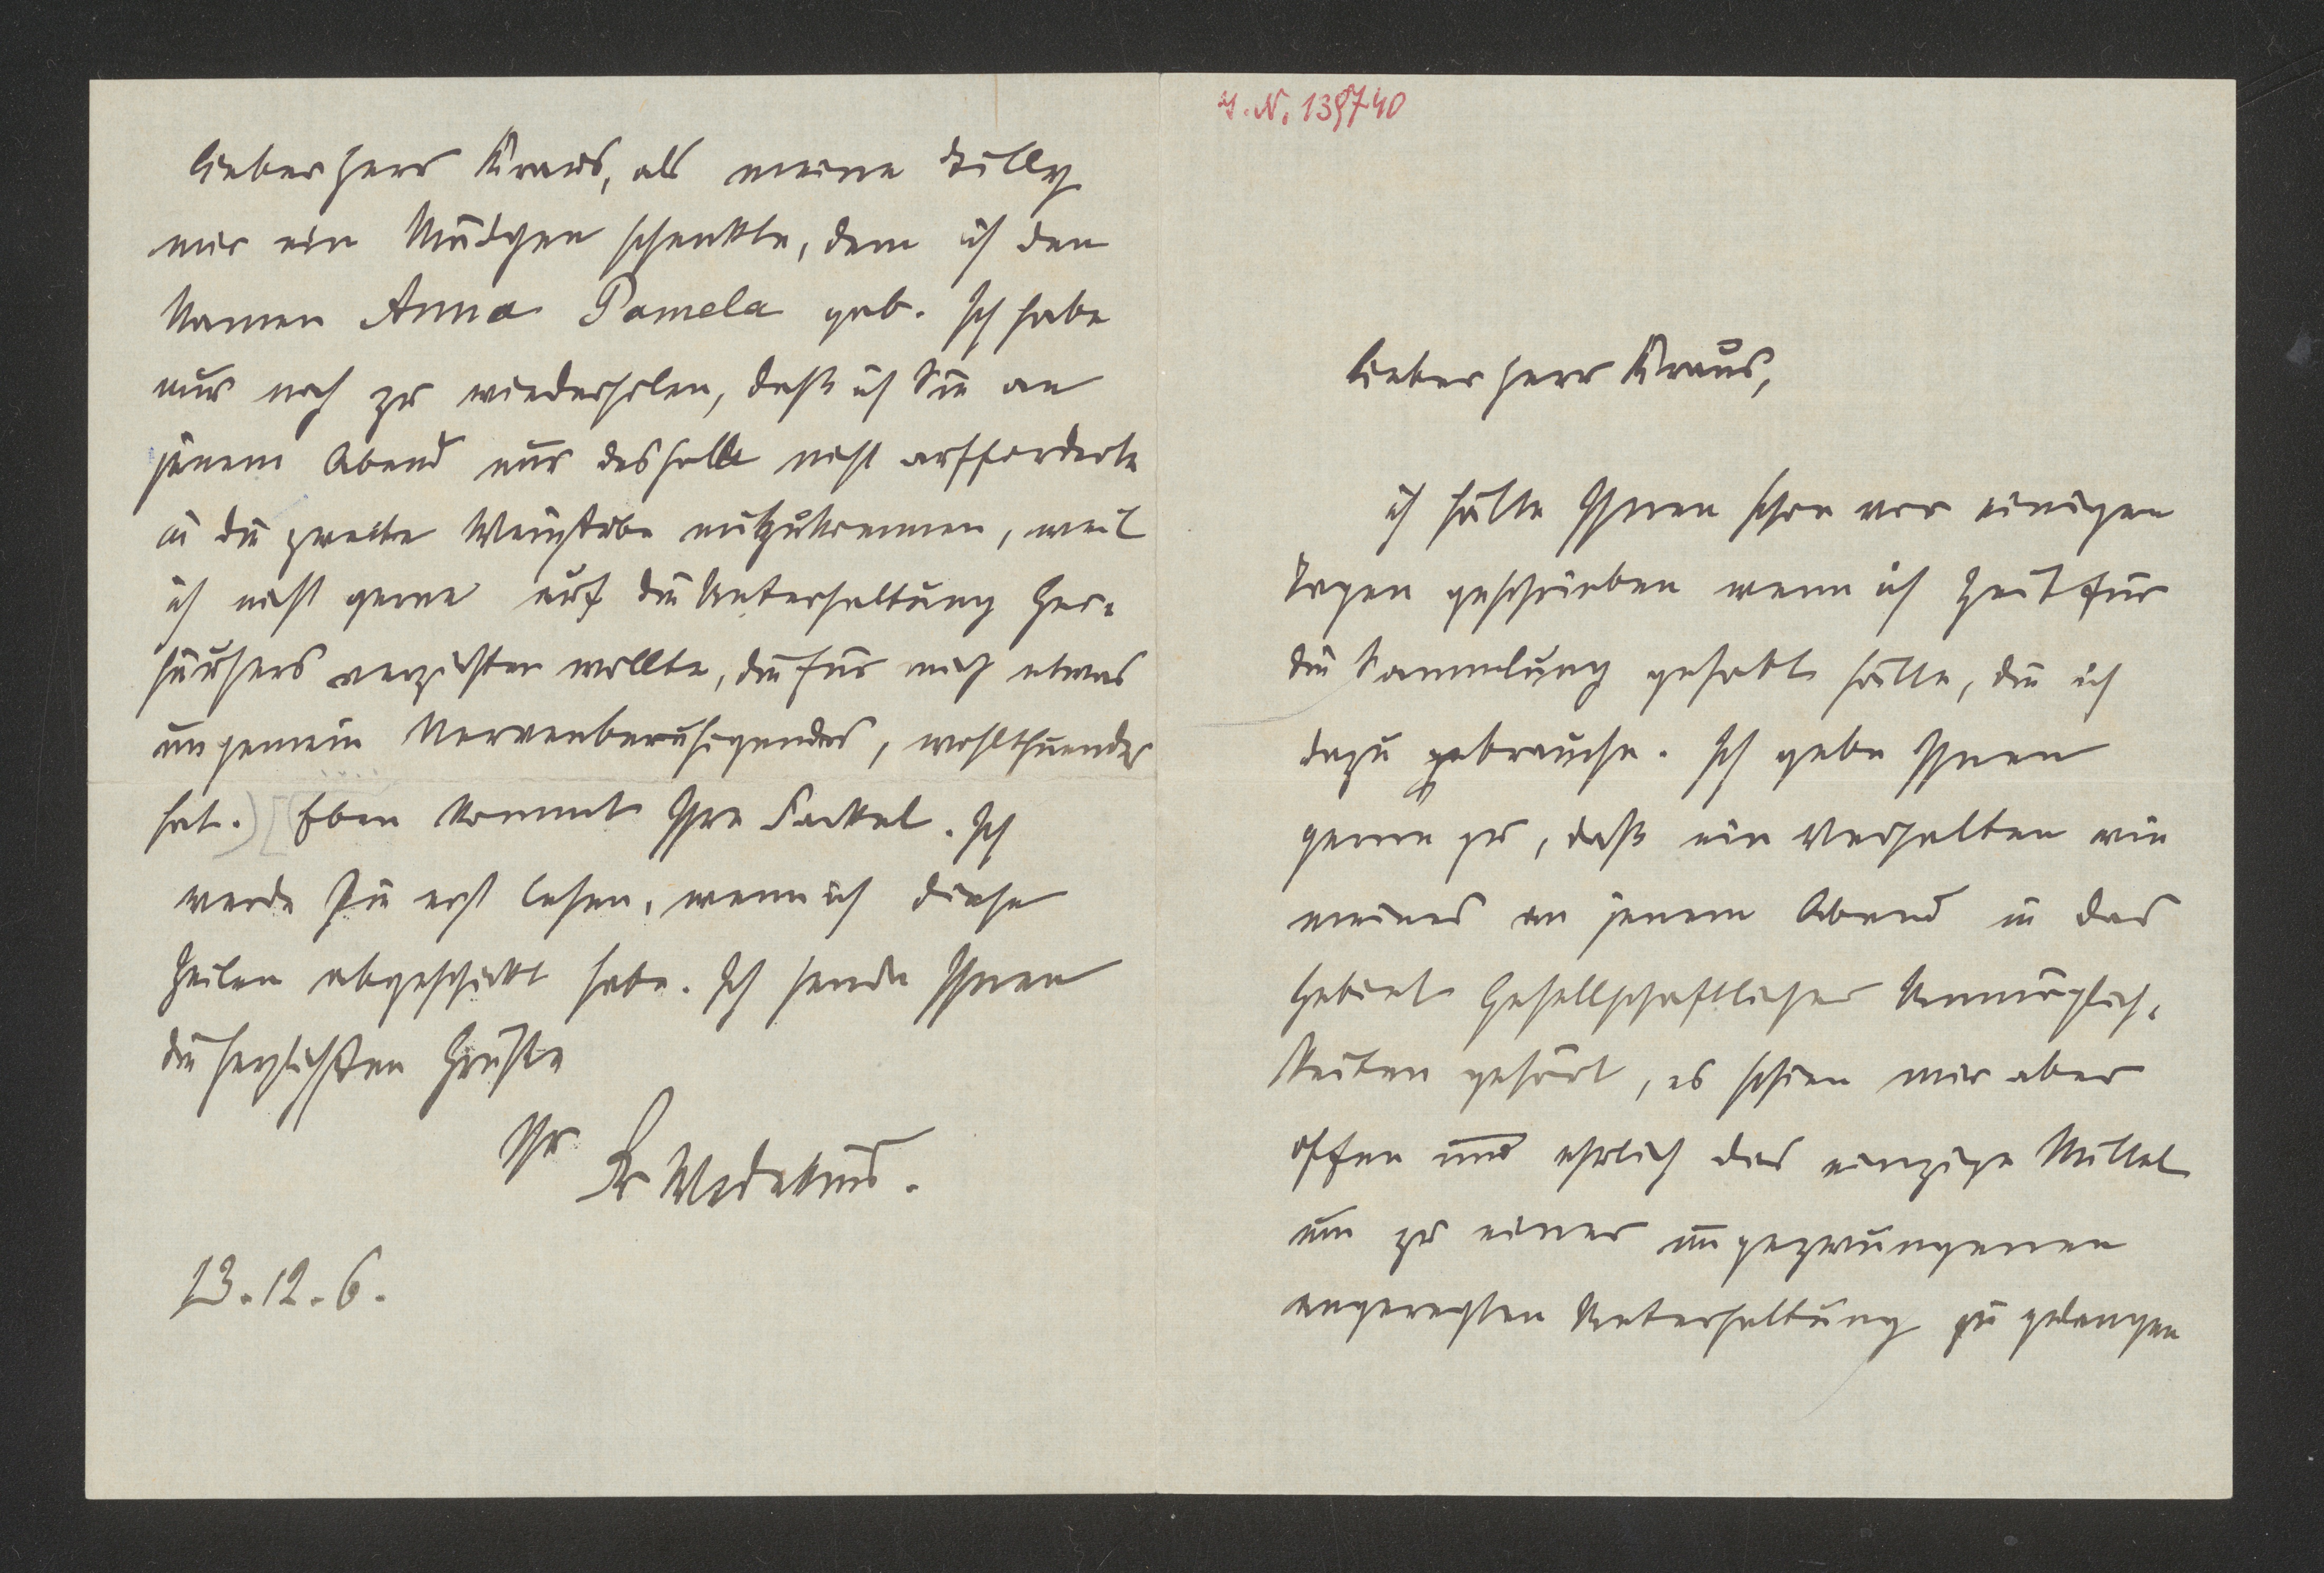 J.N. 139740
Lieber Herr Kraus,
ich hätte Ihnen schon vor einigen
Tagen geschrieben wenn ich Zeit für
die Sammlung gehabt hätte, die ich
dazu gebrauche. Ich gebe Ihnen
gerne zu, daß ein Verhalten wie
meines an jenem Abend in das
Gebiet Gesellschaftlicher Unmöglich-
keiten gehört, es schien mir aber
offen und ehrlich das einzige Mittel
um zu einer ungezwungenen
angeregten Unterhaltung zu gelangen
lieber Herr Kraus, als meine Tilly
mir ein Mädchen schenkte, dem ich den
Namen Anna Pamela gab. Ich habe
nur noch zu wiederholen, daß ich Sie an
jenem Abend nur deshalb nicht aufforderte
in die zweite Weinstube mitzukommen, weil
ich nicht gerne auf die Unterhaltung Ger-
häusers verzichten wollte, die für mich etwas
ungemein Nervenberuhigendes, wohlthuendes
hat. Eben kommt Ihre Fackel. Ich
werde sie erst lesen, wenn ich diese
Zeilen abgeschickt habe. Ich sende Ihnen
die herzlichsten Grüße
Ihr FrWedekind.
13.12.6.